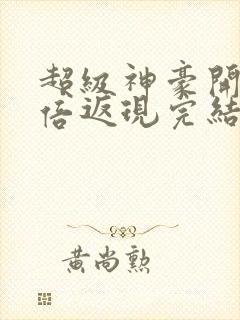 超級神豪開
倍返現完結
黃尚勲